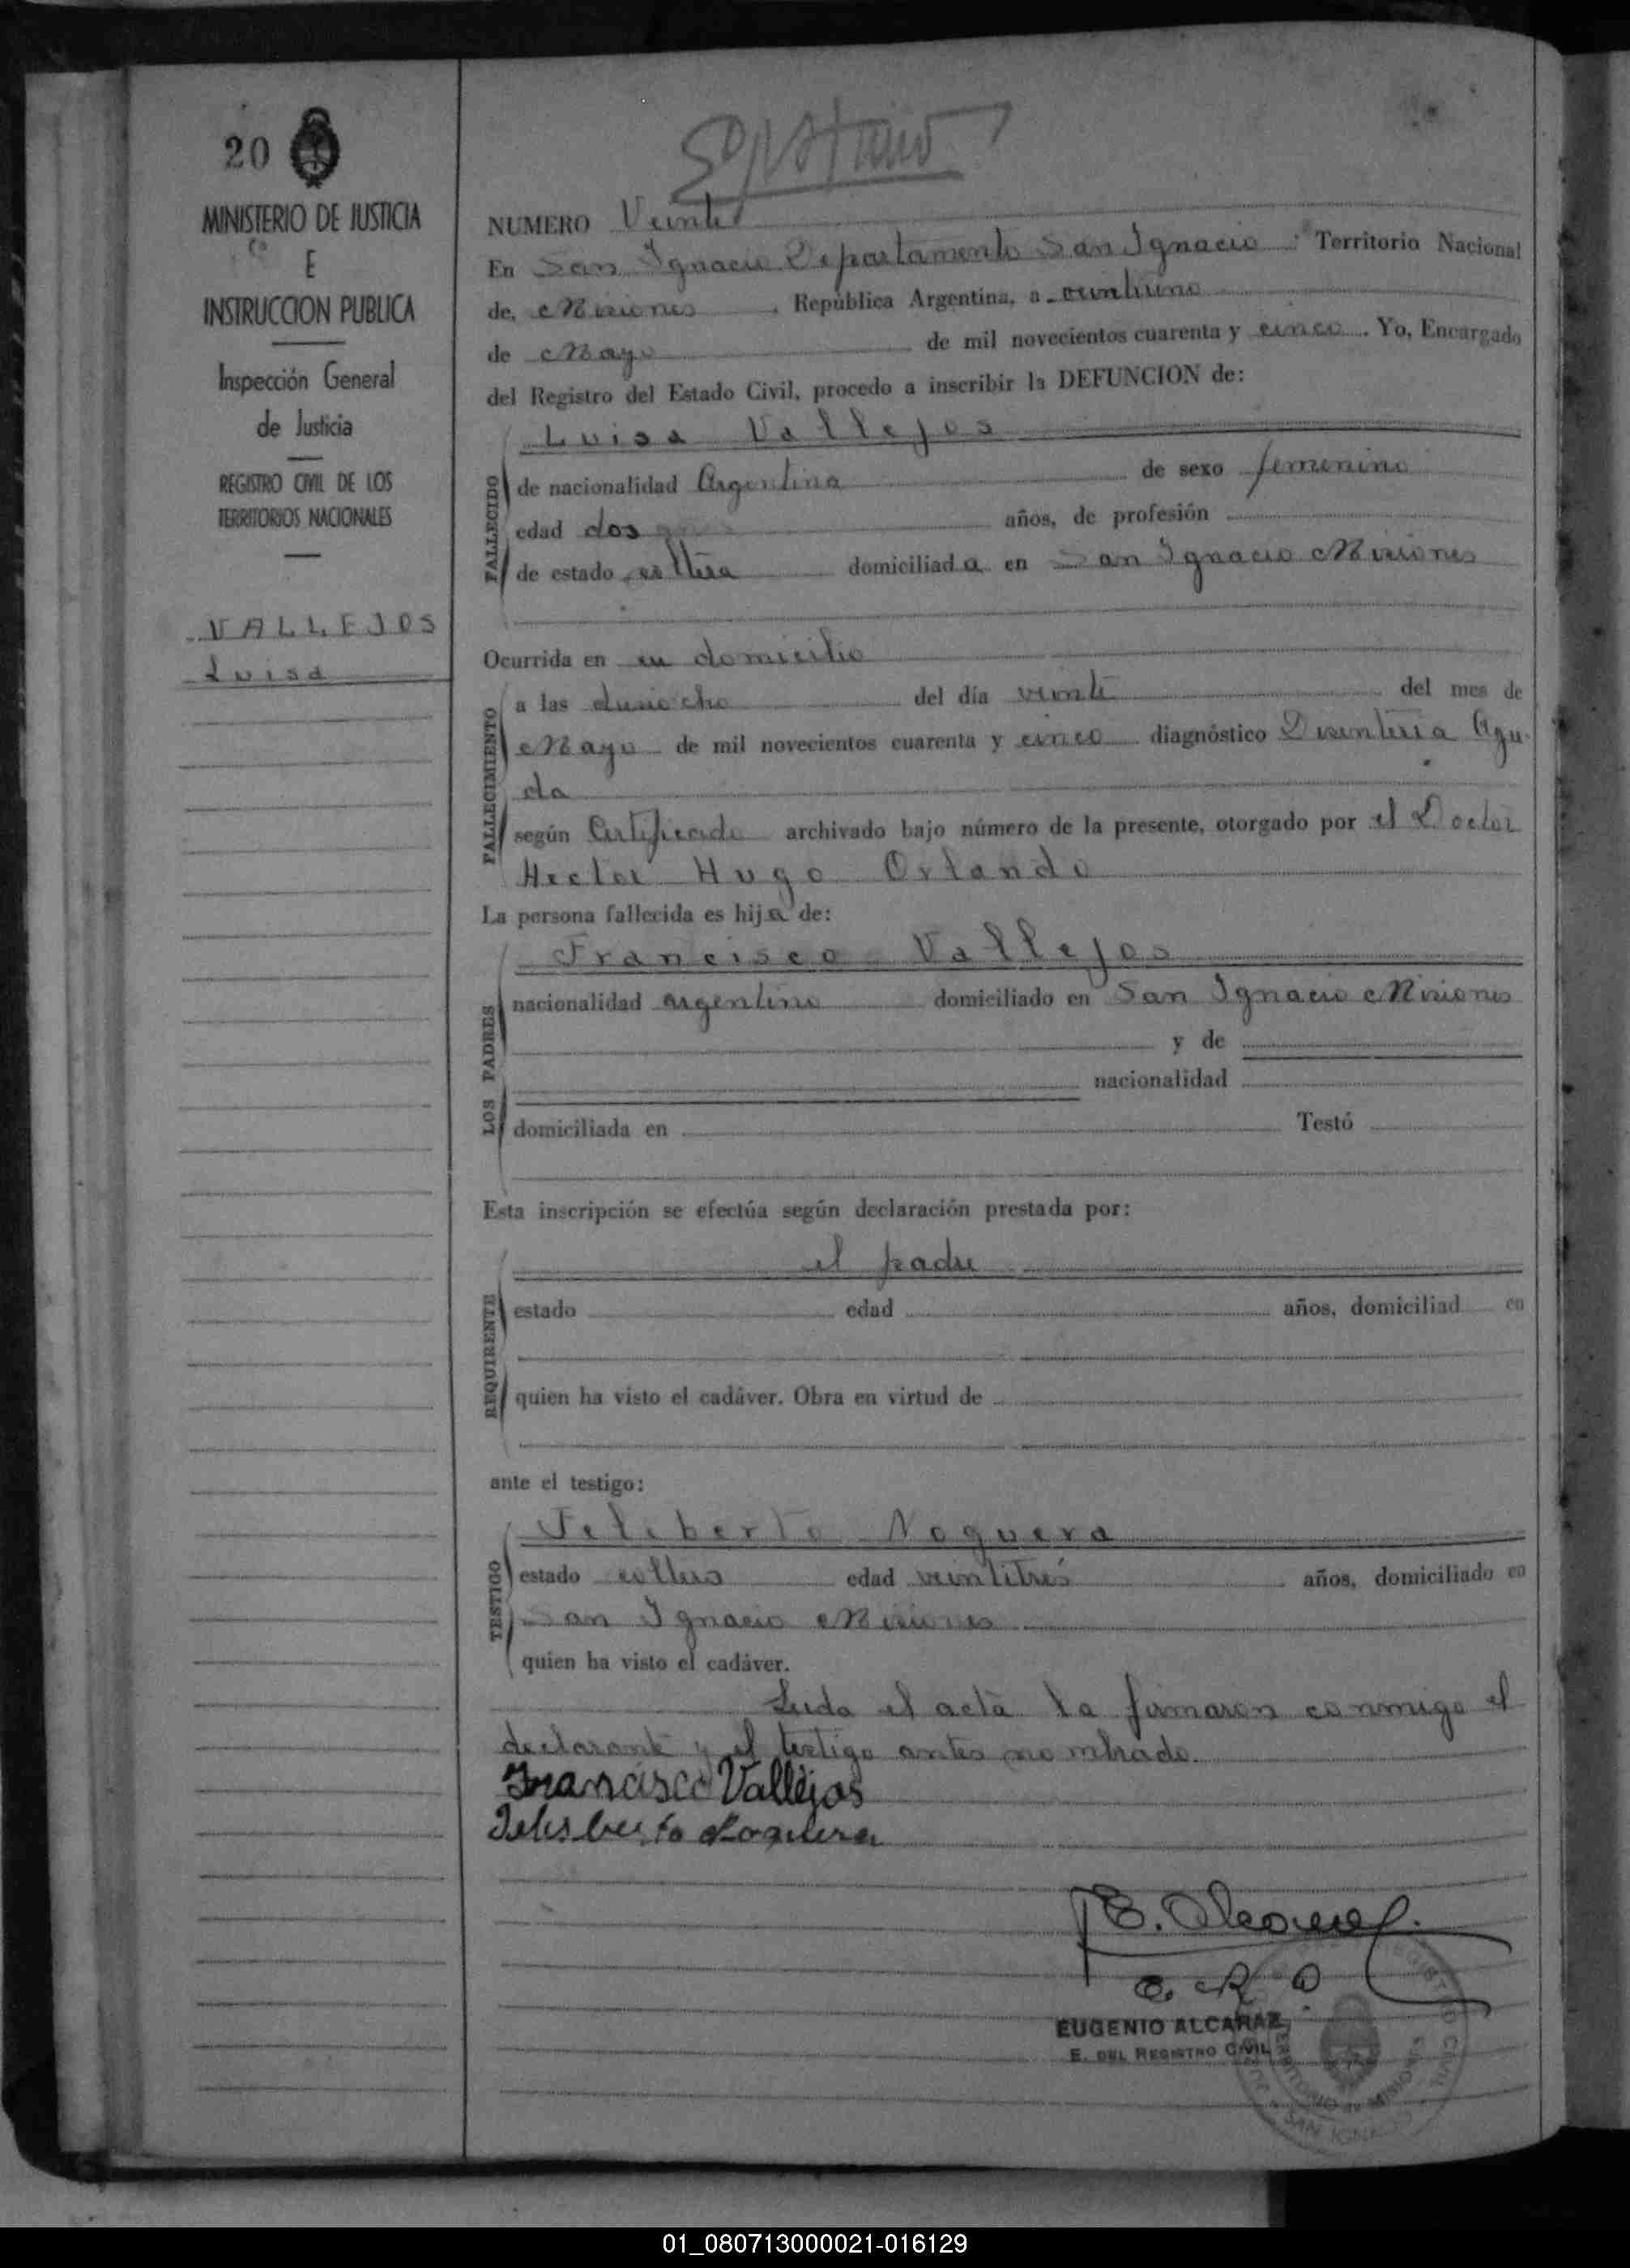 20
MINISTERIO DE JUSTICIA
E
INSTRUCCION PUBLICA
Inspección General
de Justicia
REGISTRO CIVIL DE LOS
TERRITORIOS NACIONALES
VALLEJOS
Luisa
NUMERO Veinte
En San Ignacio Departamento San Ignacio Territorio Nacional
de, Misiones, República Argentina, a veintiuno
de Mayo de mil novecientos cuarenta y cinco. Yo, Encargado
del Registro del Estado Civil, procedo a inscribir la DEFUNCION de:
Luisa Vallejos
FALLECIDO
de nacionalidad Argentina de sexo femenino
edad dos años, de profesión
de estado soltera domiciliada en San Ignacio Misiones
Ocurrida en su domicilio
FALLECIMIENTO
a las dieciocho del día veinte del mes de
Mayo de mil novecientos cuarenta y cinco diagnóstico Disenteria Agu-
da
según Certificado archivado bajo número de la presente, otorgado por el Doctor
Hector Hugo Orlando
La persona fallecida es hija de:
Francisco Vallejos
LOS PADRES
nacionalidad argentino domiciliado en San Ignacio Misiones
y de
nacionalidad
domiciliada en Testó
Esta inscripción se efectúa según declaración prestada por:
el padre
REQUIRENTE
estado edad años, domiciliad en
quien ha visto el cadáver. Obra en virtud de
ante el testigo:
Noguera
TESTIGO
estado soltero edad veintitrés años, domiciliado en
San Ignacio Misiones
quien ha visto el cadáver.
Leida el acta la firmaron conmigo el
declarante y el testigo antes nombrado.
Francisco Vallejos
E. Alcaraz
E. R. C.
EUGENIO ALCARAZ
E. DEL REGISTRO CIVIL
REGISTRO CIVIL
TERRITORIO DE MISIONES
SAN IGNACIO
01_080713000021-016129